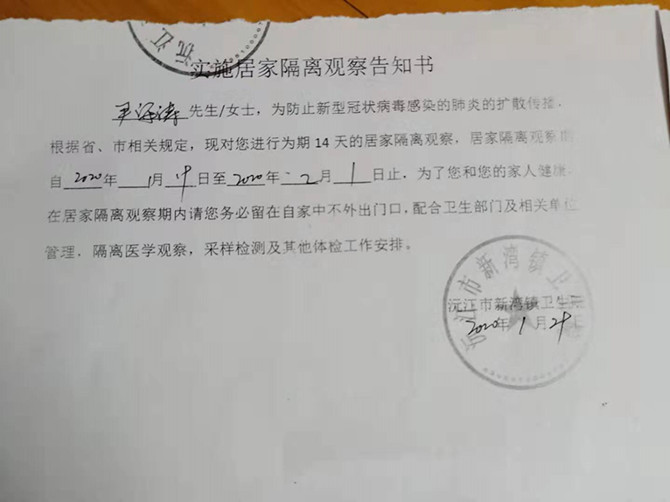 沅江
实施居家隔离观察告知书
先生/女士，为防止新型冠状病毒感染的肺炎的扩散传播，
根据省、市相关规定，现对您进行为期 14 天的居家隔离观察，居家隔离观察期
自 2020 年 1 月 日至 2020 年 2 月 1 日止，为了您和您的家人健康，
在居家隔离观察期内请您务必留在自家中不外出门口，配合卫生部门及相关单位
管理，隔离医学观察，采样检测及其他体检工作安排。
沅江市新湾镇卫生
沅江市新湾镇卫生院
2020 年 1 月 日